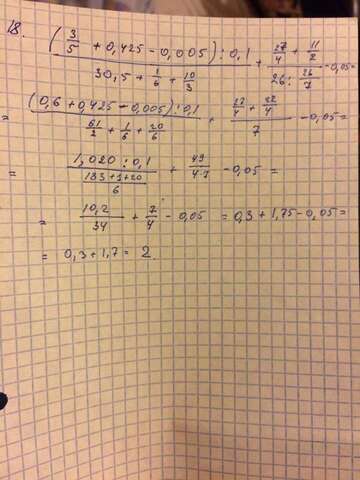 18. (3/5 + 0,425 - 0,005) : 0,1 / 30,5 + 1/6 + 10/3 + 27/4 + 11/2 / 26 : 26/7 - 0,05 =
= (0,6 + 0,425 - 0,005) : 0,1 / 61/2 + 1/6 + 20/6 + 27/4 + 22/4 / 7 - 0,05 =
= 1,020 : 0,1 / 183+1+20/6 + 49/4·7 - 0,05 =
= 10,2/34 + 7/4 - 0,05 = 0,3 + 1,75 - 0,05 =
= 0,3 + 1,7 = 2.